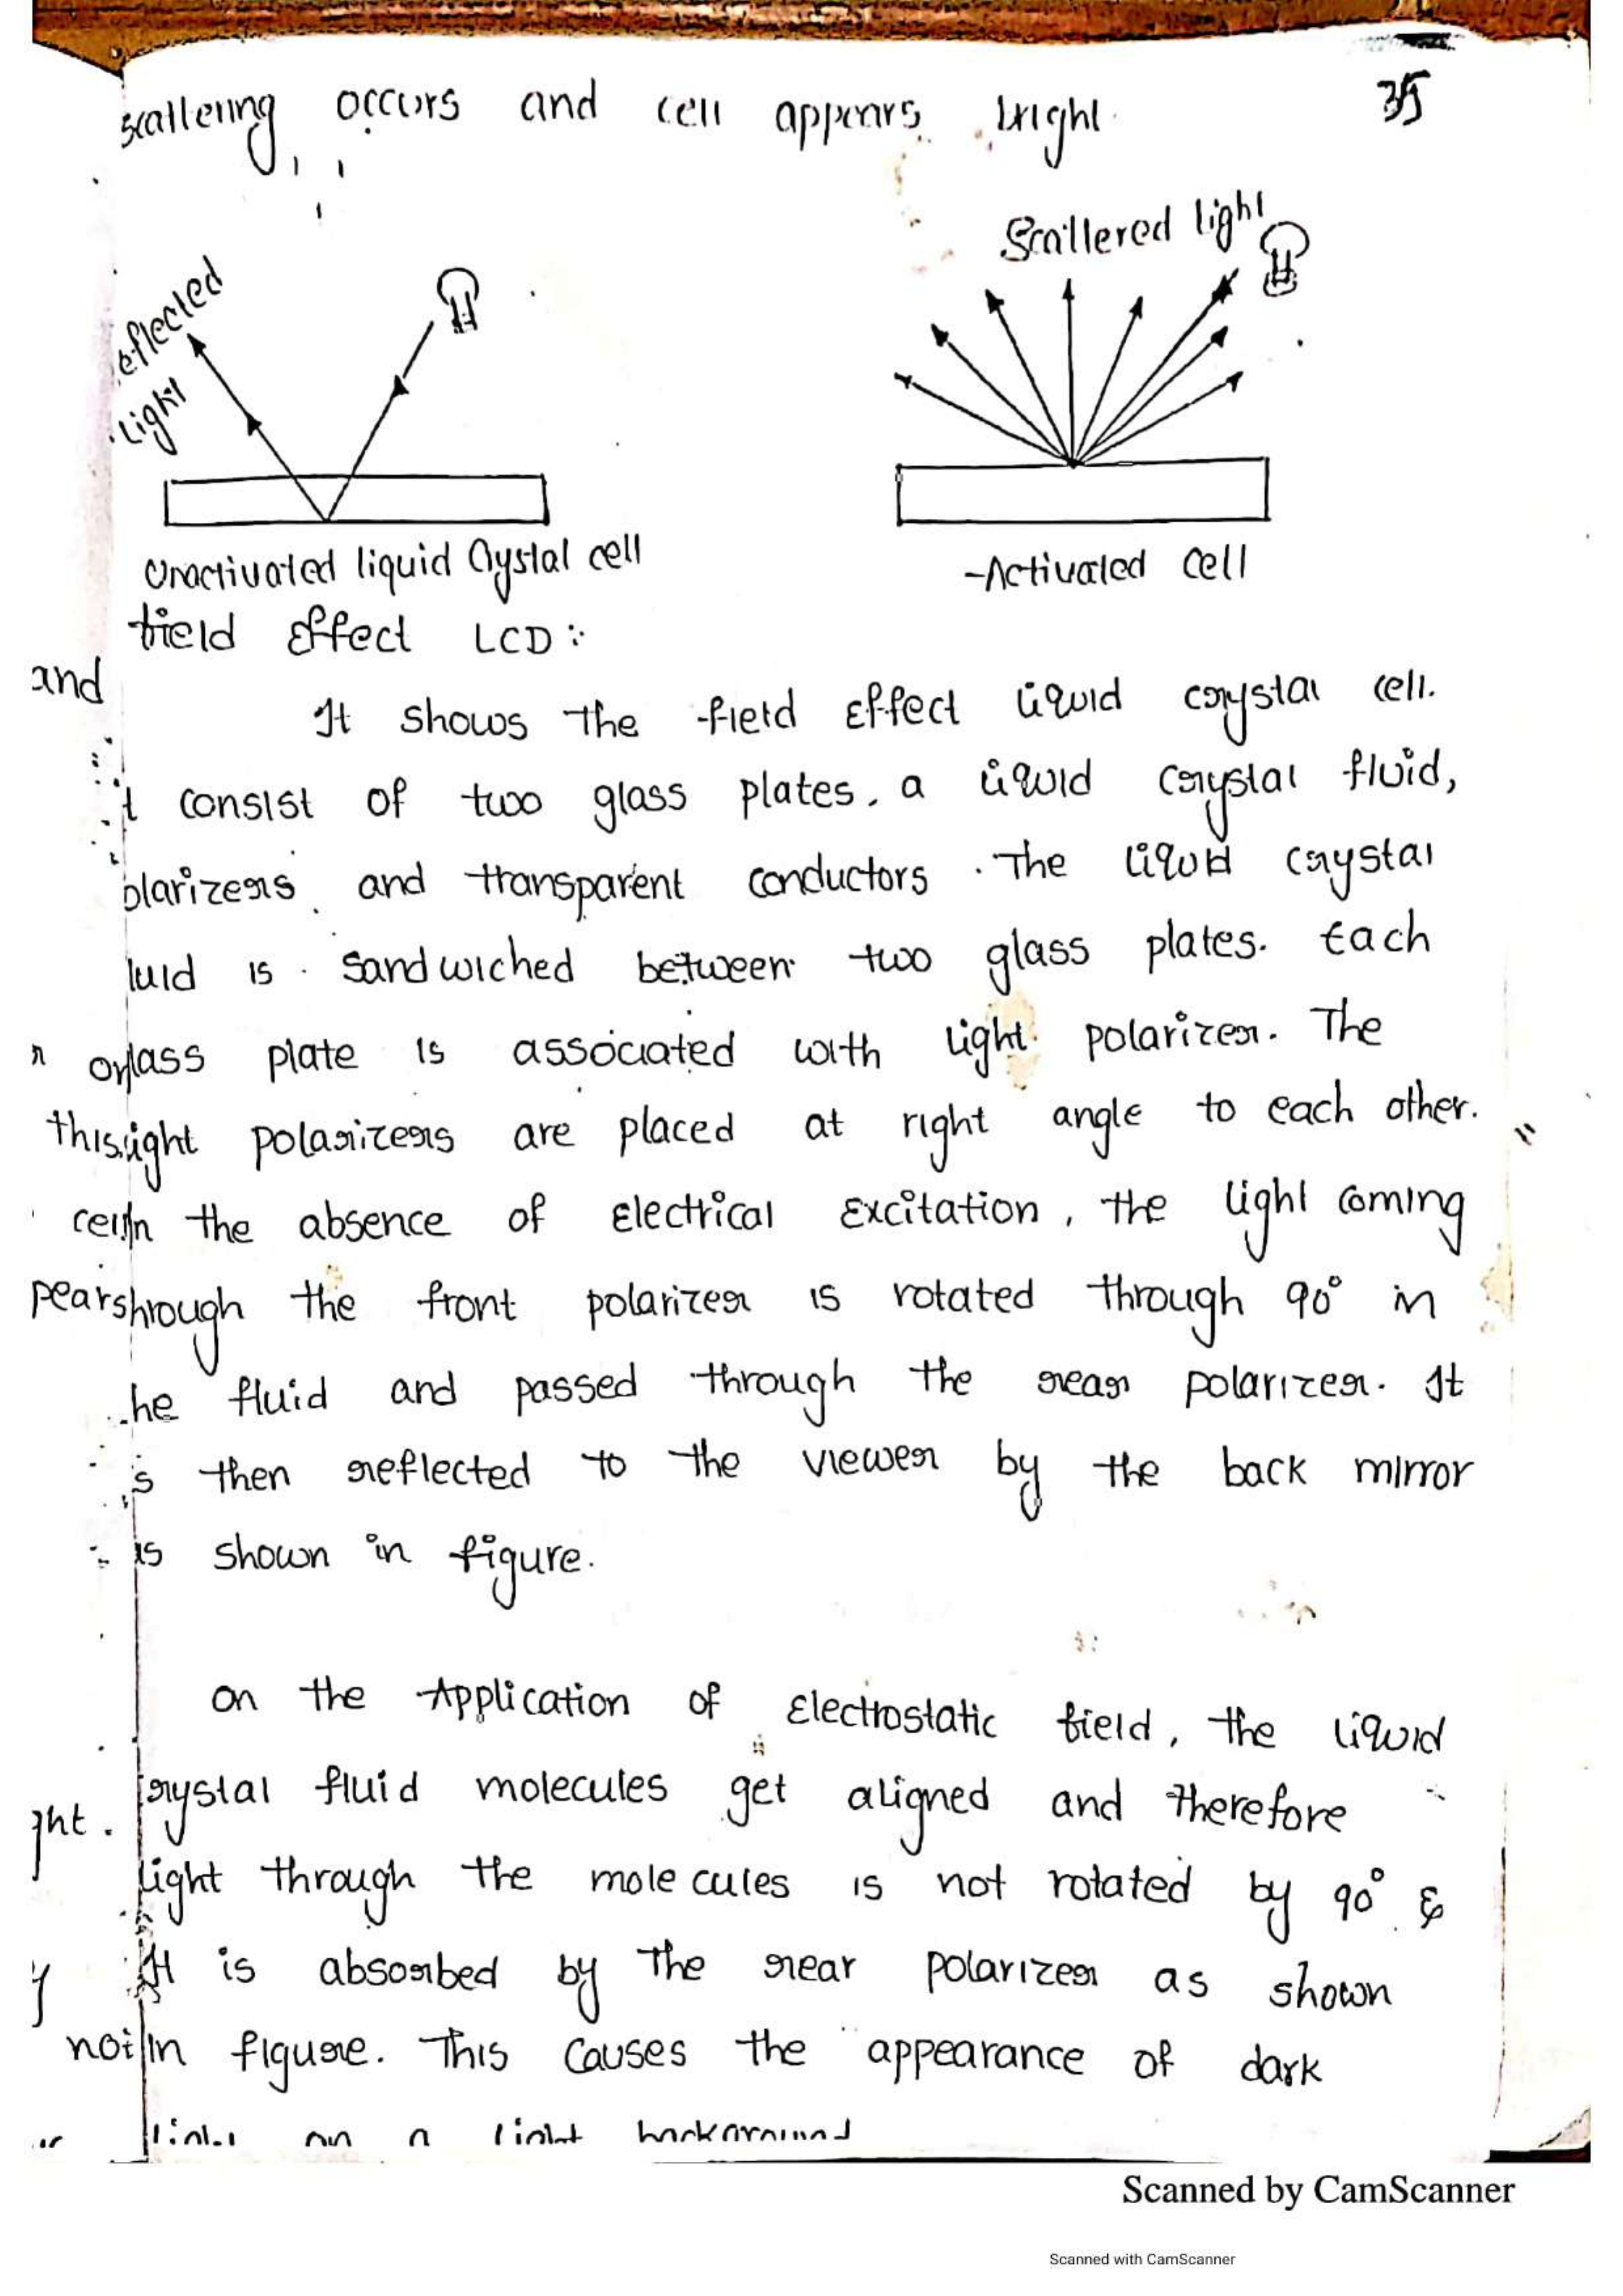 scattering occurs and cell appears bright.
35
Scattered light
eflected
Light
Unactivated liquid Crystal cell
-Activated Cell
field Effect LCD:
and
It shows the field Effect liquid crystal cell.
t consist of two glass plates, a liquid crystal fluid,
olarizers and transparent conductors. The liquid crystal
luid is sandwiched between two glass plates. Each
n glass plate is associated with light polarizer. The
this light polarizers are placed at right angle to each other.
cell In the absence of Electrical Excitation, the light coming
pears hrough the front polarizer is rotated through 90° in
he fluid and passed through the rear polarizer. It
s then reflected to the viewer by the back mirror
as shown in figure.
on the Application of Electrostatic field, the liquid
ght. crystal fluid molecules get aligned and therefore
light through the molecules is not rotated by 90° &
y It is absorbed by the rear polarizer as shown
not In figure. This causes the appearance of dark
on a light background
Scanned by CamScanner
Scanned with CamScanner